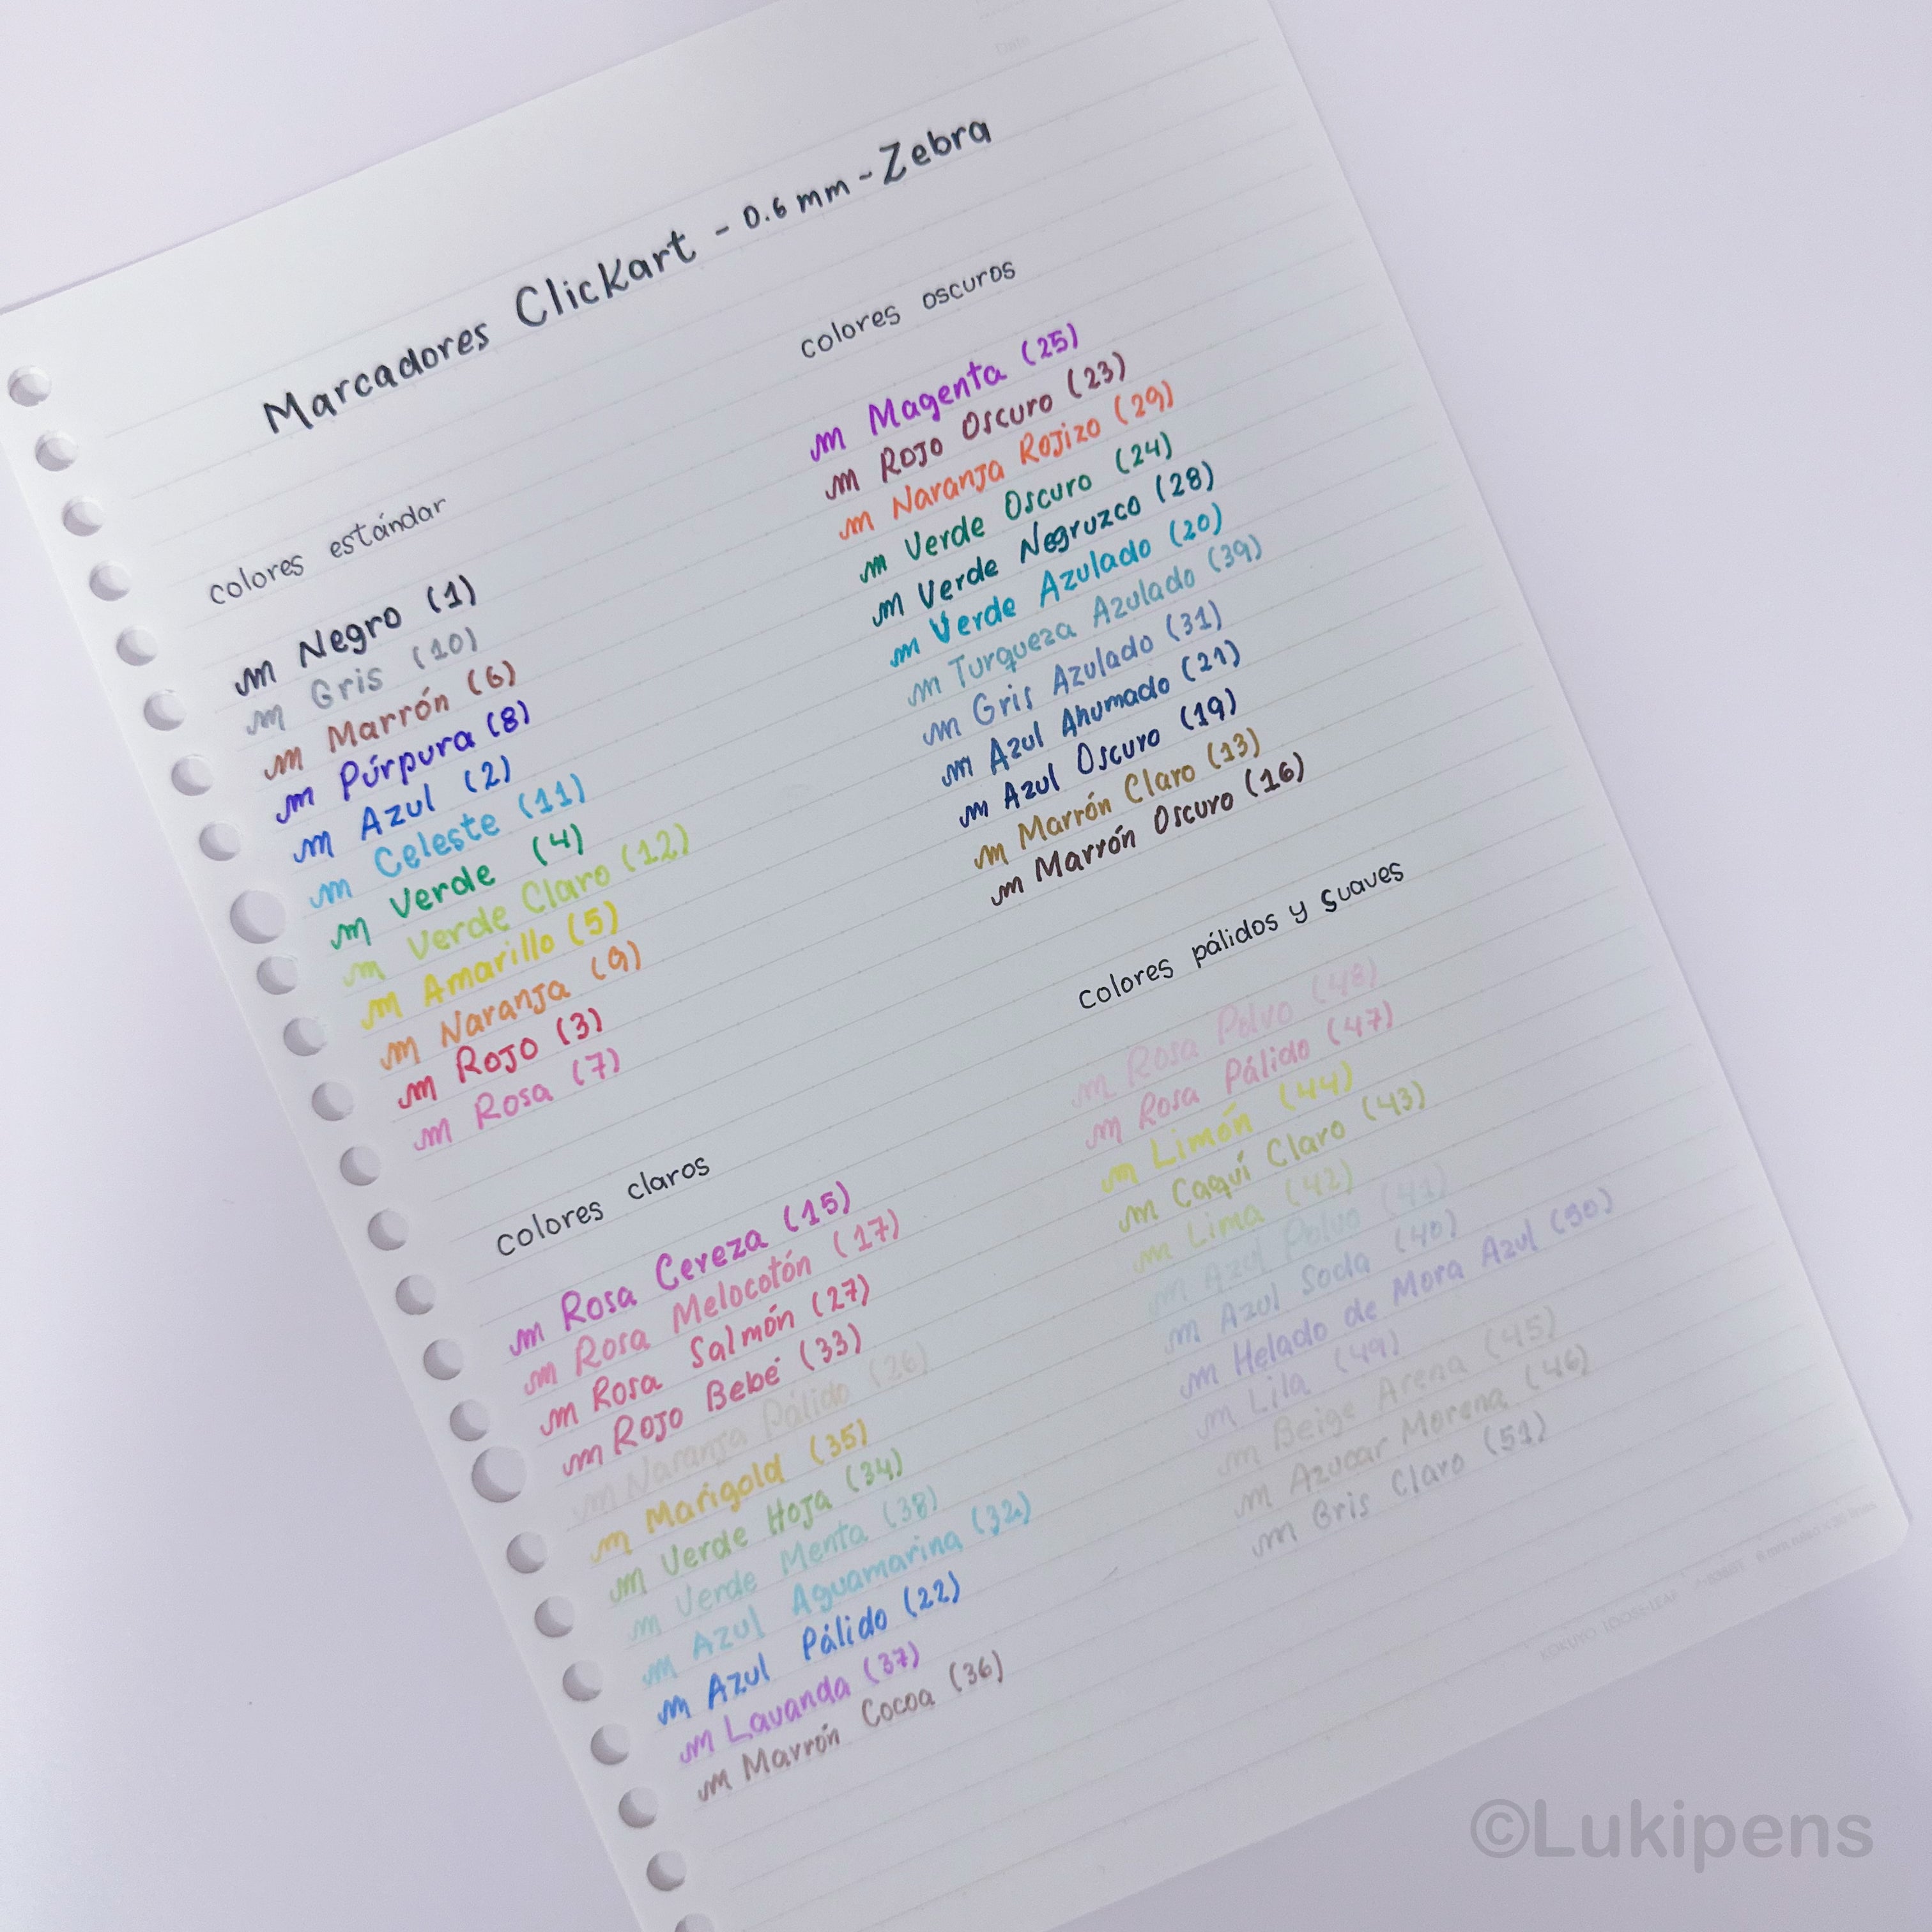 Date
Marcadores Clickart - 0.6 mm - Zebra
colores estándar
m Negro (1)
m Gris (10)
m Marrón (6)
m Púrpura (8)
m Azul (2)
m Celeste (11)
m Verde (4)
m Verde Claro (12)
m Amarillo (5)
m Naranja (9)
m Rojo (3)
m Rosa (7)
colores oscuros
m Magenta (25)
m Rojo Oscuro (23)
m Naranja Rojizo (29)
m Verde Oscuro (24)
m Verde Negruzco (28)
m Verde Azulado (20)
m Turqueza Azulado (39)
m Gris Azulado (31)
m Azul Ahumado (21)
m Azul Oscuro (19)
m Marrón Claro (13)
m Marrón Oscuro (16)
colores claros
m Rosa Cereza (15)
m Rosa Melocotón (17)
m Rosa Salmón (27)
m Rojo Bebé (33)
m Naranja Pálido (26)
m Marigold (35)
m Verde Hoja (34)
m Verde Menta (38)
m Azul Aguamarina (32)
m Azul Pálido (22)
m Lavanda (37)
m Marrón Cocoa (36)
colores pálidos y suaves
m Rosa Polvo (48)
m Rosa Pálido (47)
m Limón (44)
m Caqui Claro (43)
m Lima (42)
m Azul Polvo (41)
m Azul Soda (40)
m Helado de Mora Azul (50)
m Lila (49)
m Beige Arena (45)
m Azucar Morena (46)
m Gris Claro (51)
KOKUYO LOOSE-LEAF
©Lukipens